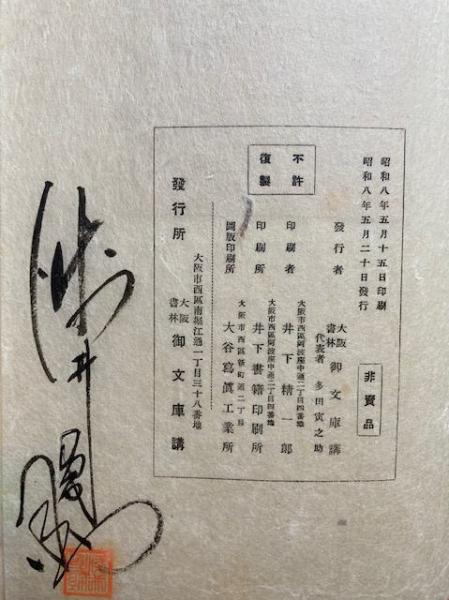 昭和八年五月十五日印刷
昭和八年五月二十日發行
非賣品
發行者
大阪書林 御文庫講
代表者 多田寅之助
大阪市西區阿波座中通二丁目四番地
印刷者 井下精一郎
大阪市西區阿波座中通二丁目四番地
印刷所 井下書籍印刷所
大阪市西區新町通二丁目
圖版印刷所 大谷寫眞工業所
不許復製
大阪市西區南堀江通一丁目三十八番地
發行所 大阪書林 御文庫講
井